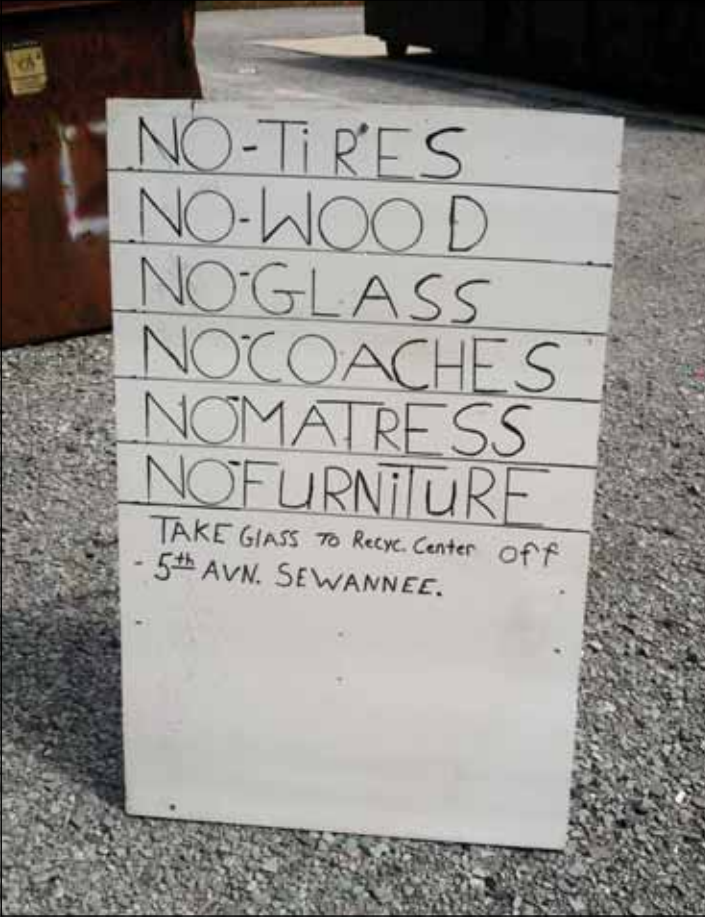 NO-TiRES
NO-WOOD
NO-GLASS
NO-COACHES
NO-MATRESS
NO-FURNiTURE
TAKE GlASS TO Recyc. Center off
- 5th AVN. SEWANNEE.